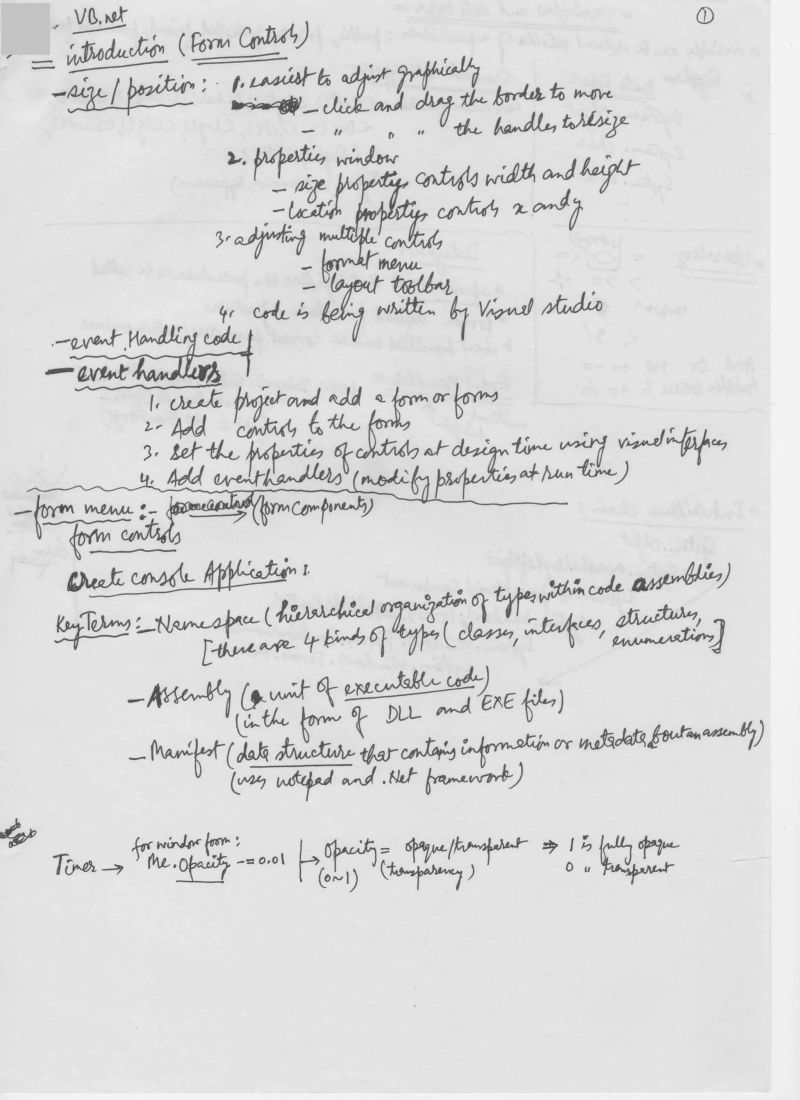 VB.net
①
= introduction (Form Controls)
- size / position : 1. easiest to adjust graphically
- click and drag the border to move
- " " " the handles to resize
2. properties window
- size property controls width and height
- location property controls x and y
3. adjusting multiple controls
- format menu
- layout toolbar
4. code is being written by Visual studio
- event Handling code
- event handlers
1. create project and add a form or forms
2. Add controls to the forms
3. set the properties of controls at design time using visual interfaces
4. Add event handlers (modify properties at run time)
- form menu :- (form Components)
form controls
Create console Application 1.
Key Terms :- Namespace (hierarchical organization of types within code assemblies)
[there are 4 kinds of types (classes, interfaces, structures,
enumerations]
- Assembly (a unit of executable code)
(in the form of DLL and EXE files)
- Manifest (data structure that contains information or metadata about an assembly)
(uses notepad and .Net framework)
for window form :
Timer → Me.Opacity -= 0.01 → Opacity = opaque/transparent ⇒ 1 is fully opaque
(0~1) (transparency) 0 " transparent